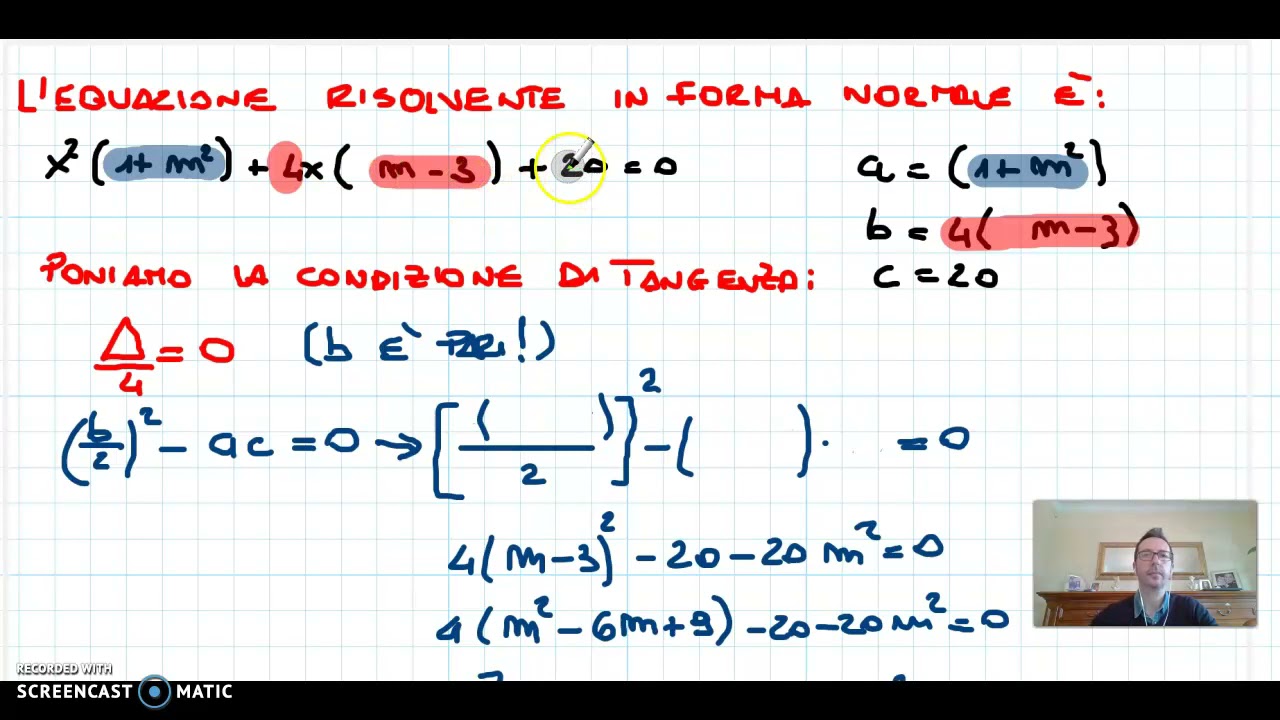 L'EQUAZIONE RISOLVENTE IN FORMA NORMALE È:
x² (1+ m²) + 4x ( m - 3 ) + 20 = 0
a = (1+ m²)
b = 4( m-3)
PONIAMO LA CONDIZIONE DI TANGENZA:
c = 20
Δ/4 = 0 (b E' PARI!)
(b/2)² - ac = 0 → [( )/2]² - ( ) · = 0
4(m-3)² - 20 - 20 m² = 0
4(m² - 6m + 9) - 20 - 20m² = 0
RECORDED WITH
SCREENCAST MATIC